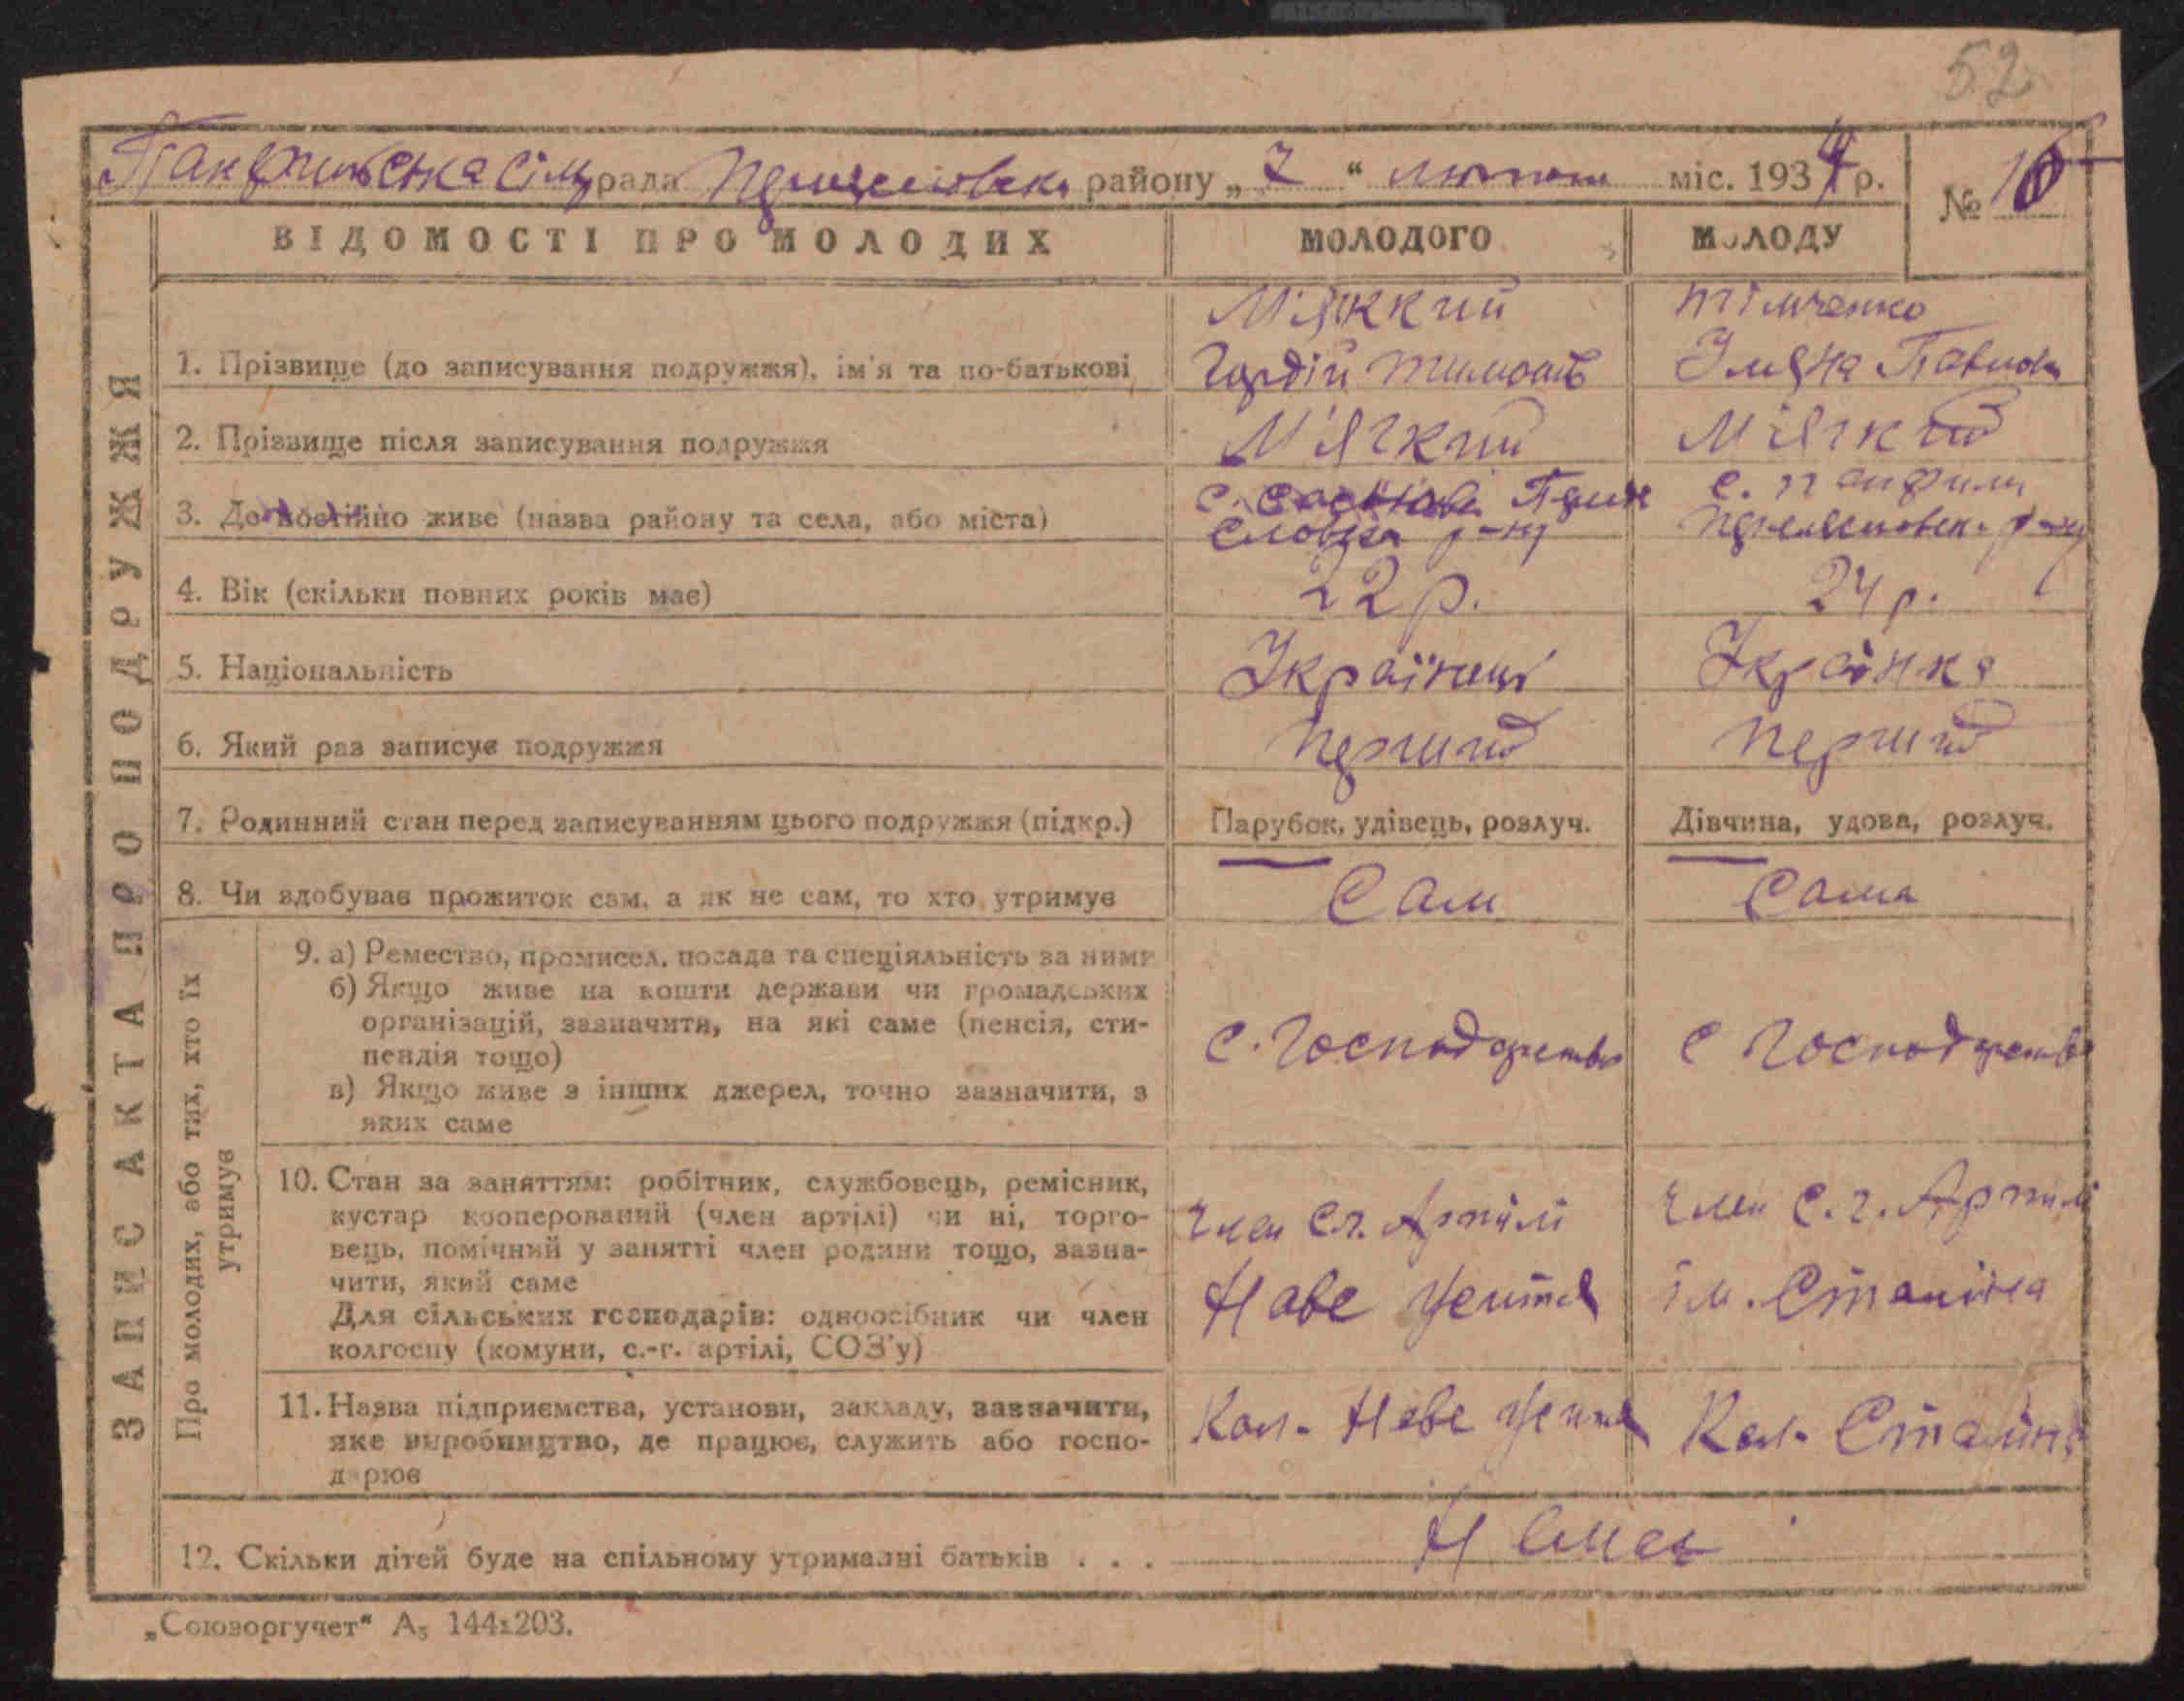 52
Панфильська сіль рада район у „ 7 “ лютого міс. 1934 р.
№ 10
ВІДОМОСТІ ПРО МОЛОДИХ
МОЛОДОГО
МОЛОДУ
ЗАПИС АКТА ПРО ПОДРУЖЖЯ
1. Прізвище (до записування подружжя), ім'я та по-батькові
Мяккий
Гордій Тимоф
Тімченко
Уляна Павлов
2. Прізвище після записування подружжя
М'ягкий
Мягкий
3. Де постійно живе (назва району та села, або міста)
с. р-ну
с. Панфили
р-ну
4. Вік (скільки повних років має)
22 р.
24 р.
5. Національність
Українець
Українка
6. Який раз записує подружжя
перший
перший
7. Родинний стан перед записуванням цього подружжя (підкр.)
Парубок, удівець, розлуч.
Дівчина, удова, розлуч.
8. Чи здобуває прожиток сам, а як не сам, то хто утримує
Сам
Сама
Про молодих, або тих, хто їх
утримує
9. а) Ремество, промисел, посада та спеціяльність за ними
б) Якщо живе на кошти держави чи громадських
організацій, зазначити, на які саме (пенсія, сти-
пендія тощо)
в) Якщо живе з інших джерел, точно зазначити, з
яких саме
С. Господарство
С Господарство
10. Стан за заняттям: робітник, службовець, ремісник,
кустар кооперований (член артілі) чи ні, торго-
вець, помічний у занятті член родини тощо, зазна-
чити, який саме
Для сільських господарів: одноосібник чи член
колгоспу (комуни, с.-г. артілі, СОЗ'у)
Член С.г. Артілі
Наве Життя
Член С.г. Артілі
ім. Сталіна
11. Назва підприємства, установи, закладу, зазначити,
яке виробництво, де працює, служить або госпо-
дарює
Кол. Наве Життя
Кол. Сталіна
12. Скільки дітей буде на спільному утриманні батьків . . .
Немає
„Союзоргучет“ А₅ 144х203.